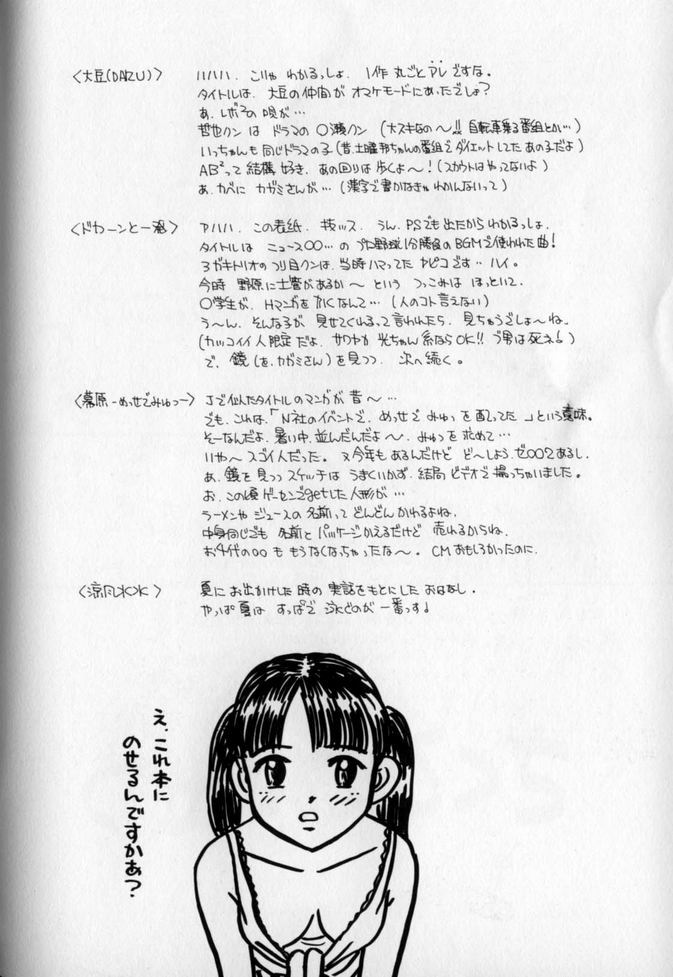 〈大豆(DAIZU)〉
ハハハ. こりゃ わかるっしょ. 1作 丸ごと アレ ですな。
タイトルは. 大豆の仲間が オマケモードにあったでしょ?
あ. レボ²の 唄が…
哲也クン は ドラマの ○瀬クン (大スキなの〜!! 自転車乗る番組とか…)
いっちゃんも同じドラマの子(昔. 土曜邦ちゃんの番組でダイエットしてた あの子だよ)
AB²って 結構 好き. あの回りは 歩くよ〜! (スカウトはやってないよ)
あ. カベに カガミさんが… (漢字で書かなきゃ わかんないって)
〈ドカーンと一発〉
アハハ. この表紙. 技ッス. うん. PSでも出たからわかるっしょ.
タイトルは ニュース○○… の プロ野球1分勝負の BGMで使われた曲!
3ガキトリオのつり目クンは. 当時ハマってた ヤピコです‥ ハイ。
今時 野原に土管があるか〜 という つっこみは ほっといて.
○学生が. Hマンガを かくなんて… (人のコト言えない)
う〜ん. そんな子が 見せてくれるって言われたら. 見ちゃうでしょ〜ね。
(カッコイイ人限定だよ. サワヤか 光ちゃん系ならOK!! ブ男は死え!)
で. 鏡 (を. カガミさん) を見つつ 次へ続く。
〈幕原-めっせでみゅつー〉
Jで似たタイトルのマンガが 昔〜…
でも. これは. 「N社のイベントで. めっせで みゅつを 配ってた 」という 意味。
そーなんだよ. 暑い中. 並んだんだよ〜. みゅつを 求めて…
いや〜 スゴイ人だった。 又今年も あるんだけど ど〜しよう. ゼ○○2あるし.
あ. 鏡を見つつ スケッチは うまくいかず. 結局 ビデオで 撮っちゃいました。
お. この頃 ゲーセンでgetした 人形が…
ラーメンや ジュースの 名前って どんどん かわるよね.
中身同じでも 名前と パッケージかえるだけど 売れるからね.
お4代の○○ も もうなくなっちゃったな〜。 CMおもしろかったのに.
〈涼風水水〉
夏に お出かけした 時の 実話をもとにした おはなし.
やっぱ 夏は すっぱで 泳ぐのが 一番っす!
え、これ本に
のせるんですかあ?